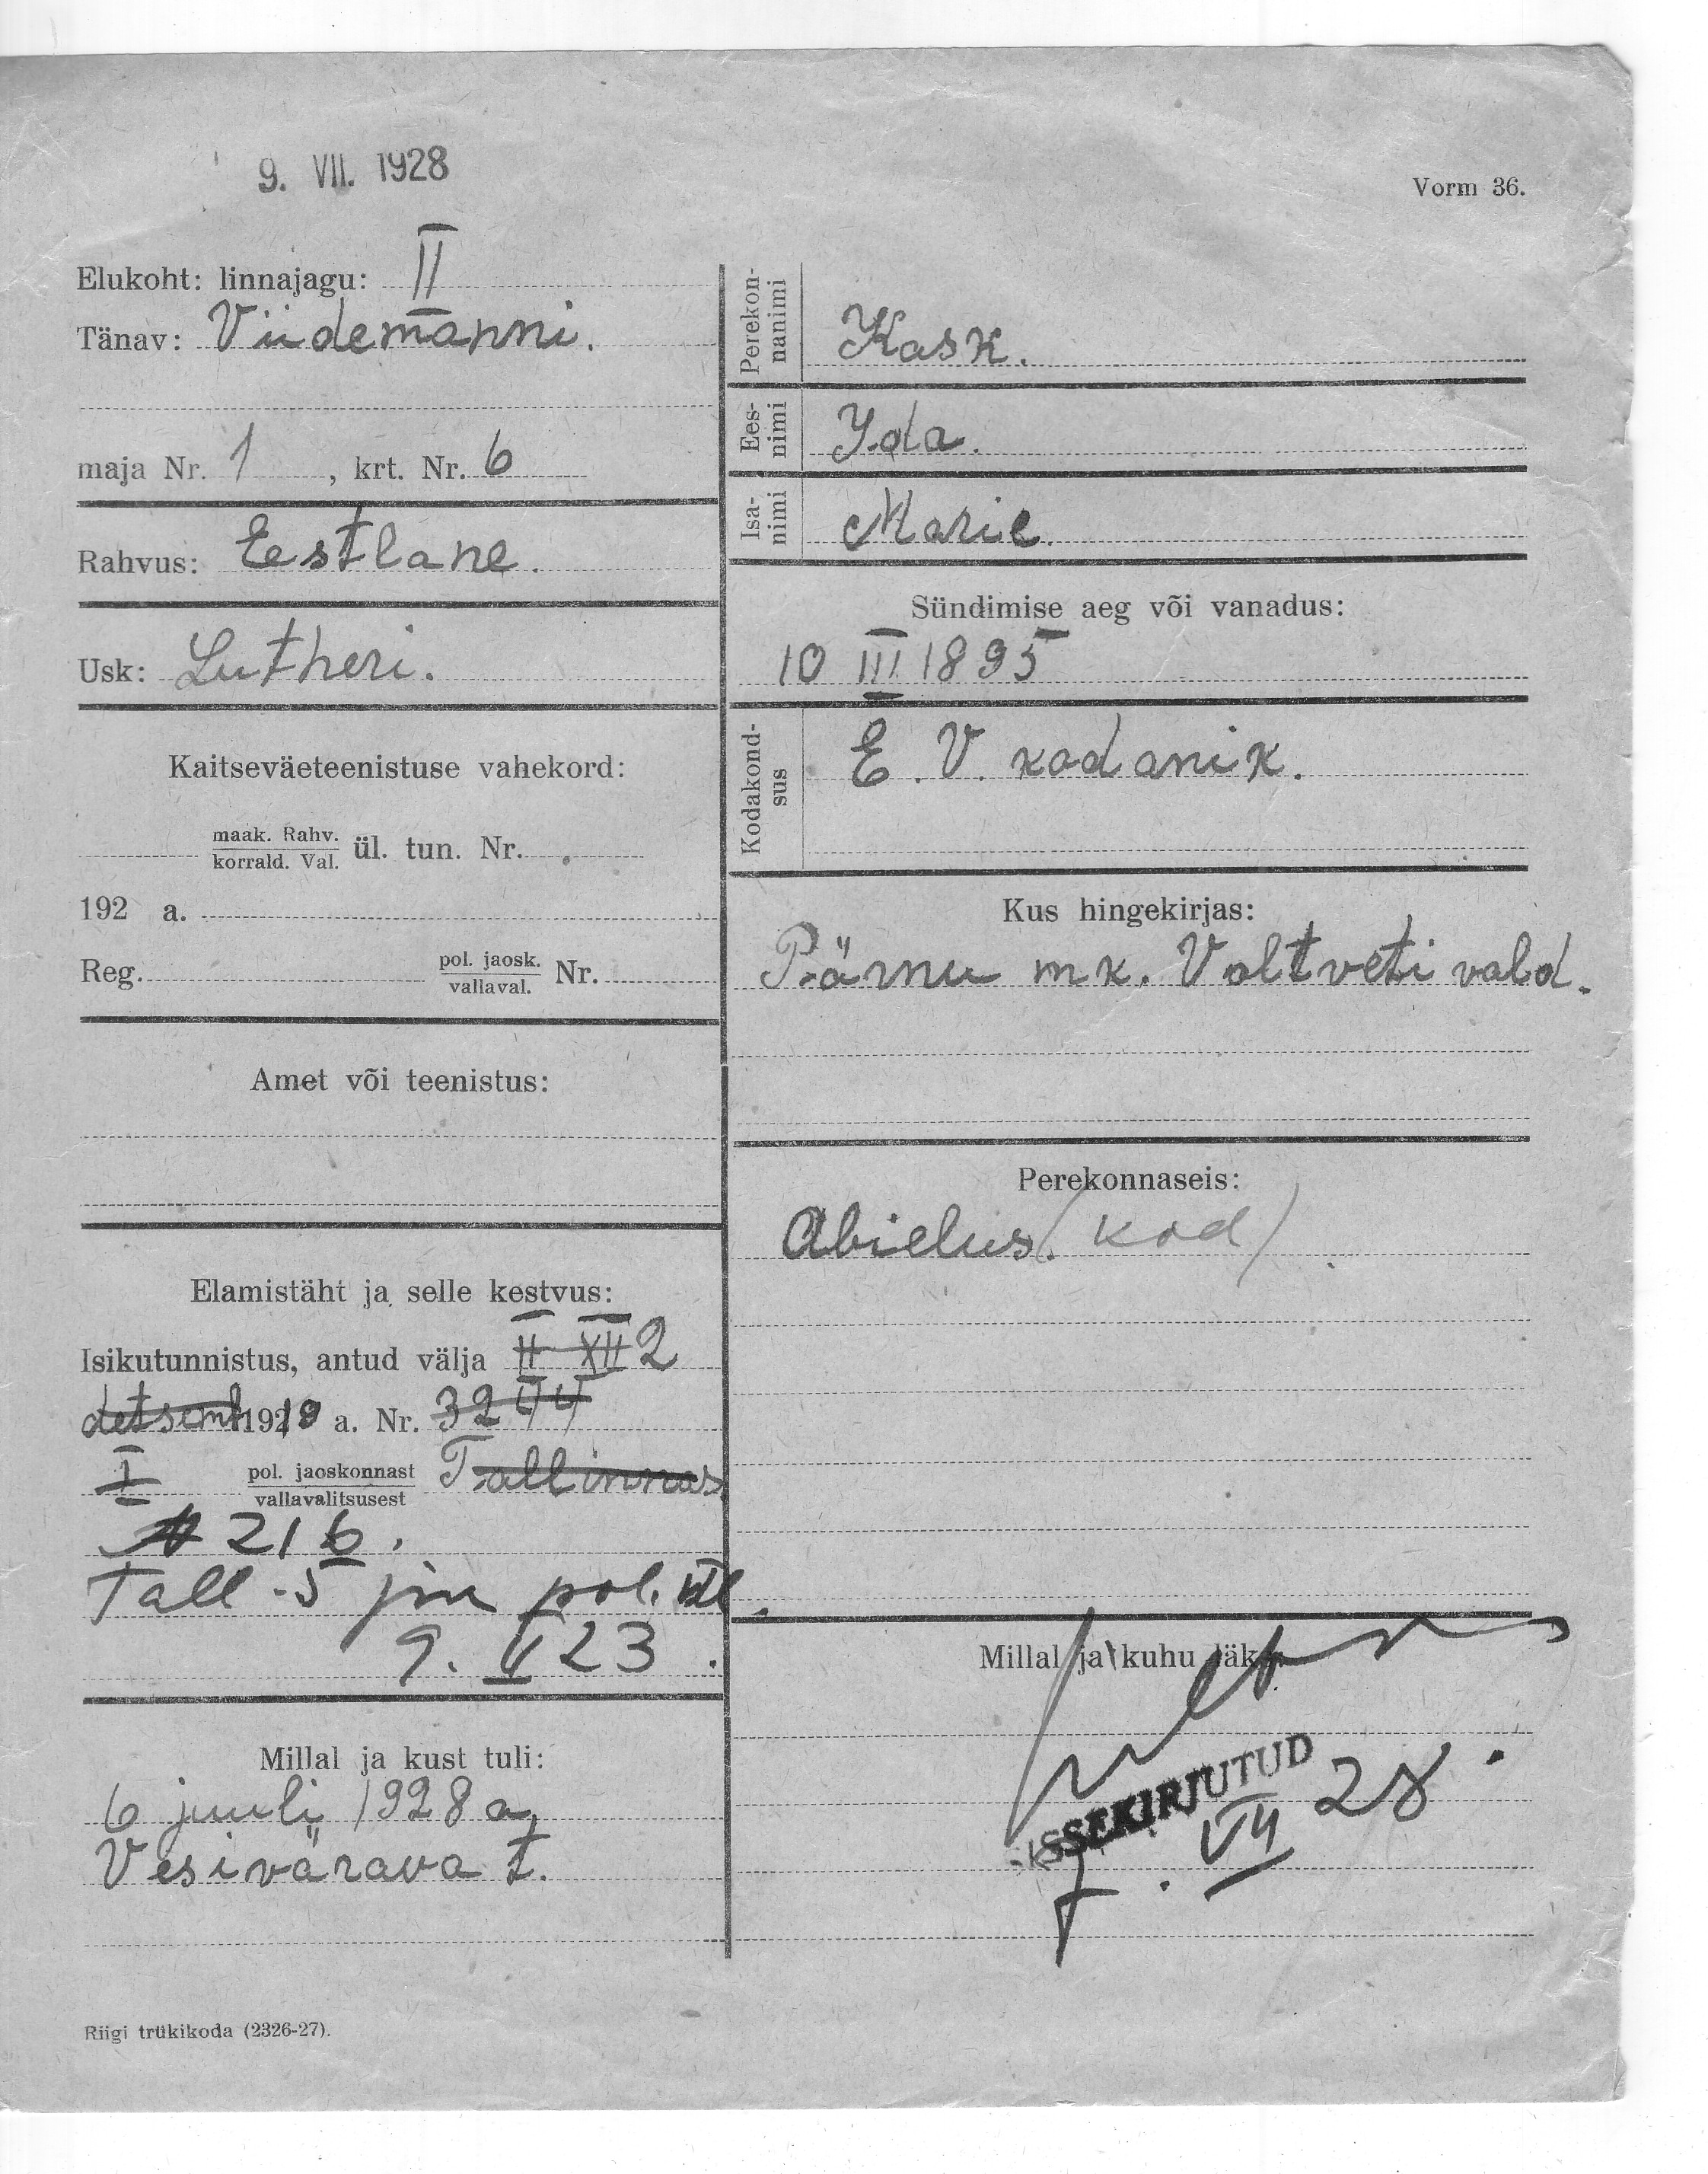 9. VII. 1928
Vorm 36.
Elukoht: linnajagu: II
Tänav: Viidemanni.
maja Nr. 1, krt. Nr. 6
Rahvus: Eestlane.
Usk: Lutheri.
Kaitseväeteenistuse vahekord:
maak. Rahv.
korrald. Val. ül. tun. Nr.
192 a.
Reg. pol. jaosk.
vallaval. Nr.
Amet või teenistus:
Elamistäht ja selle kestvus:
Isikutunnistus, antud välja II XII 2
detsemb 1919 a. Nr. 3244
I pol. jaoskonnast
vallavalitsusest Tallinnas
№ 216.
Tall. 5 jsk pol.
9. V 23.
Millal ja kust tuli:
6 juuli 1928 a,
Vesivärava t.
Riigi trükikoda (2326-27).
Perekonnanimi Kask.
Eesnimi Yda.
Isanimi Marie.
Sündimise aeg või vanadus:
10 III 1895
Kodakondsus E. V. kodanik.
Kus hingekirjas:
Pärnu mk. Voltveti vald.
Perekonnaseis:
Abielus. (kod)
Millal ja kuhu läks:
SISSEKIRJUTUD
7. VII 28.